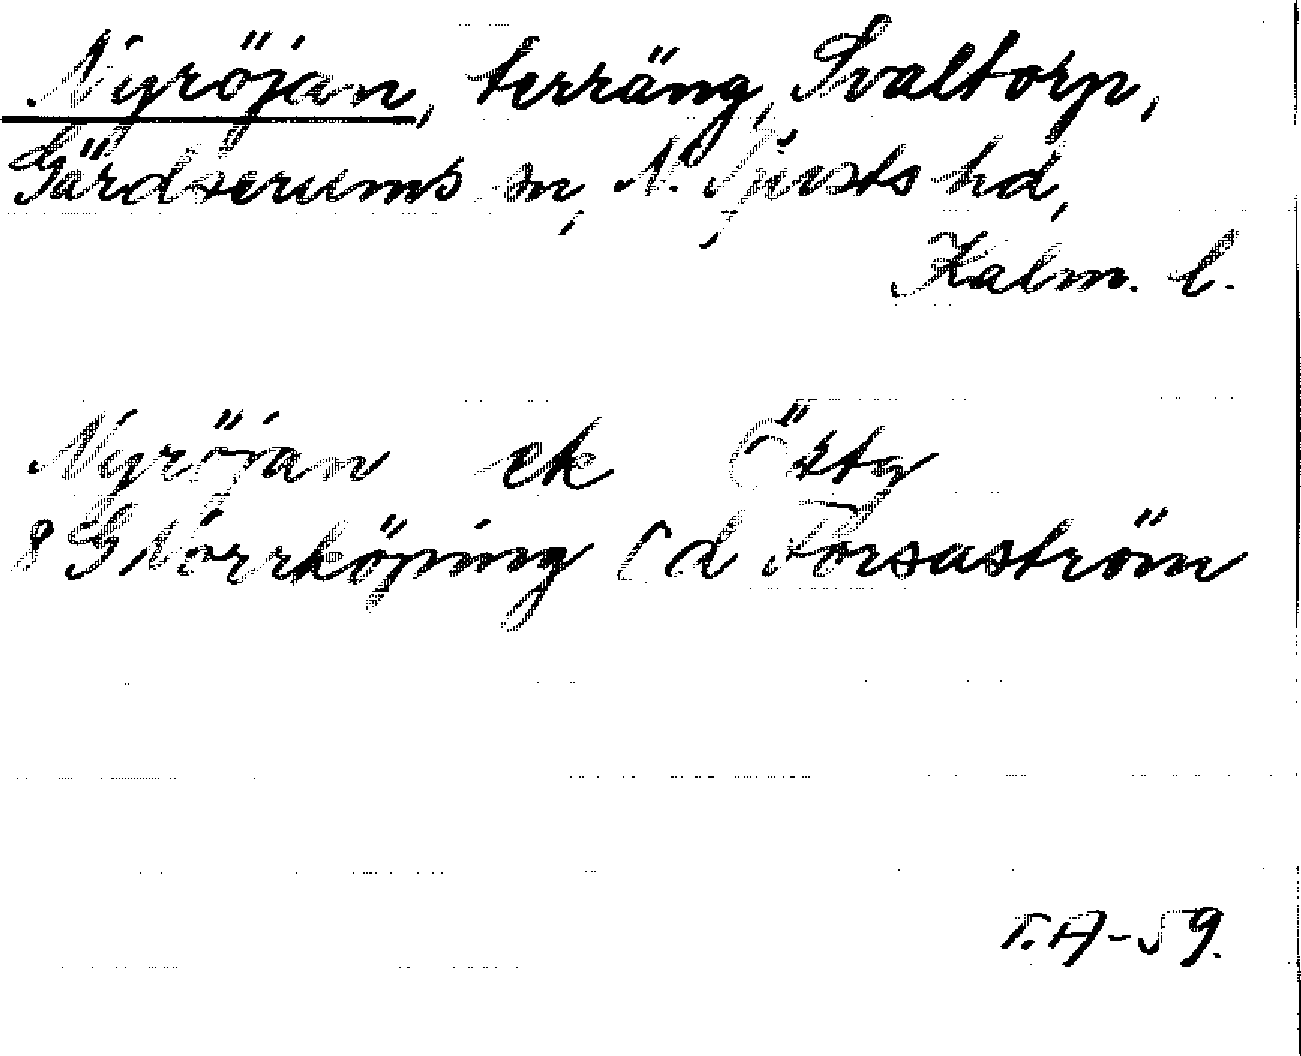 Nyröjan, terräng, Svaltorp,
Gärdserums sn, N. Tjusts hd,
Kalm. l.
Nyröjan ek Östg
8 G Norrköping Cd Forsaström
T.A-59.